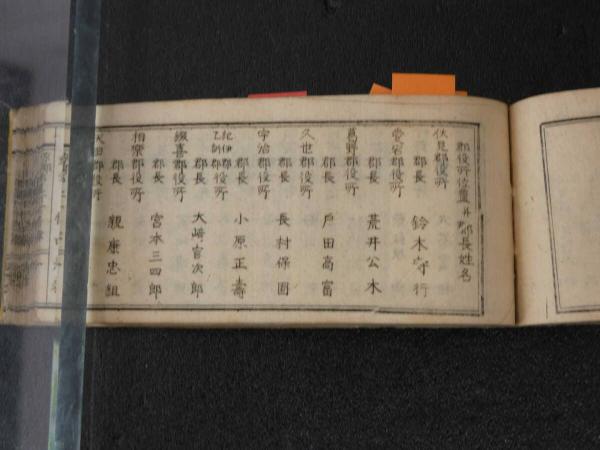 郡役所位置并郡長姓名
伏見郡役所
郡長 鈴木守行
愛宕郡役所
郡長 荒井公木
葛野郡役所
郡長 戸田高富
久世郡役所
郡長 長村保固
宇治郡役所
郡長 小原正壽
紀伊乙訓郡役所
郡長 大﨑官次郎
綴喜郡役所
郡長 宮本三四郎
相樂郡役所
郡長 親康忠組
郡役所